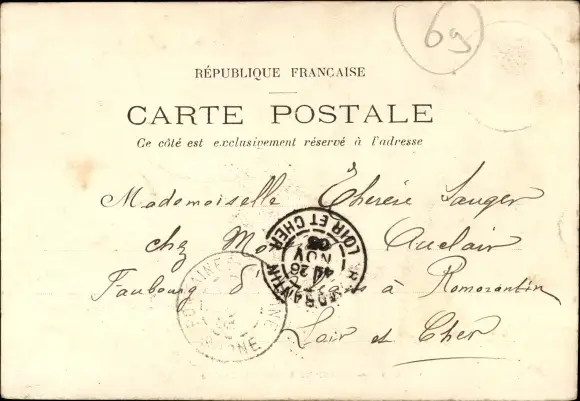 69
RÉPUBLIQUE FRANÇAISE
CARTE POSTALE
Ce côté est exclusivement réservé à l'adresse
Mademoiselle Thérèse Sauger
chez Auclair
Faubourg à Romorantin
Loir et Cher
LOIR ET CHER
26
NOV
03